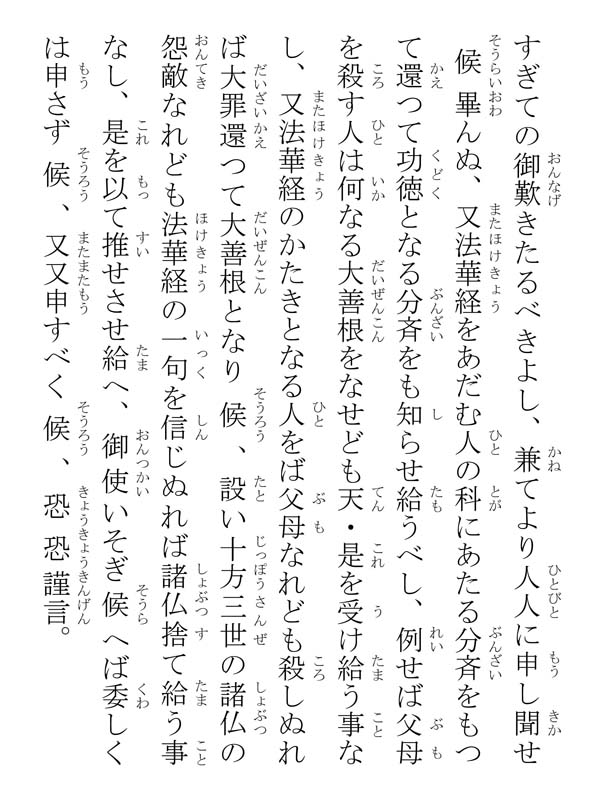 すぎての御歎きたるべきよし、兼てより人人に申し聞せ
候畢んぬ、又法華経をあだむ人の科にあたる分斉をもつ
て還つて功徳となる分斉をも知らせ給うべし、例せば父母
を殺す人は何なる大善根をなせども天・是を受け給う事な
し、又法華経のかたきとなる人をば父母なれども殺しぬれ
ば大罪還つて大善根となり候、設い十方三世の諸仏の
怨敵なれども法華経の一句を信じぬれば諸仏捨て給う事
なし、是を以て推せさせ給へ、御使いそぎ候へば委しく
は申さず候、又又申すべく候、恐恐謹言。